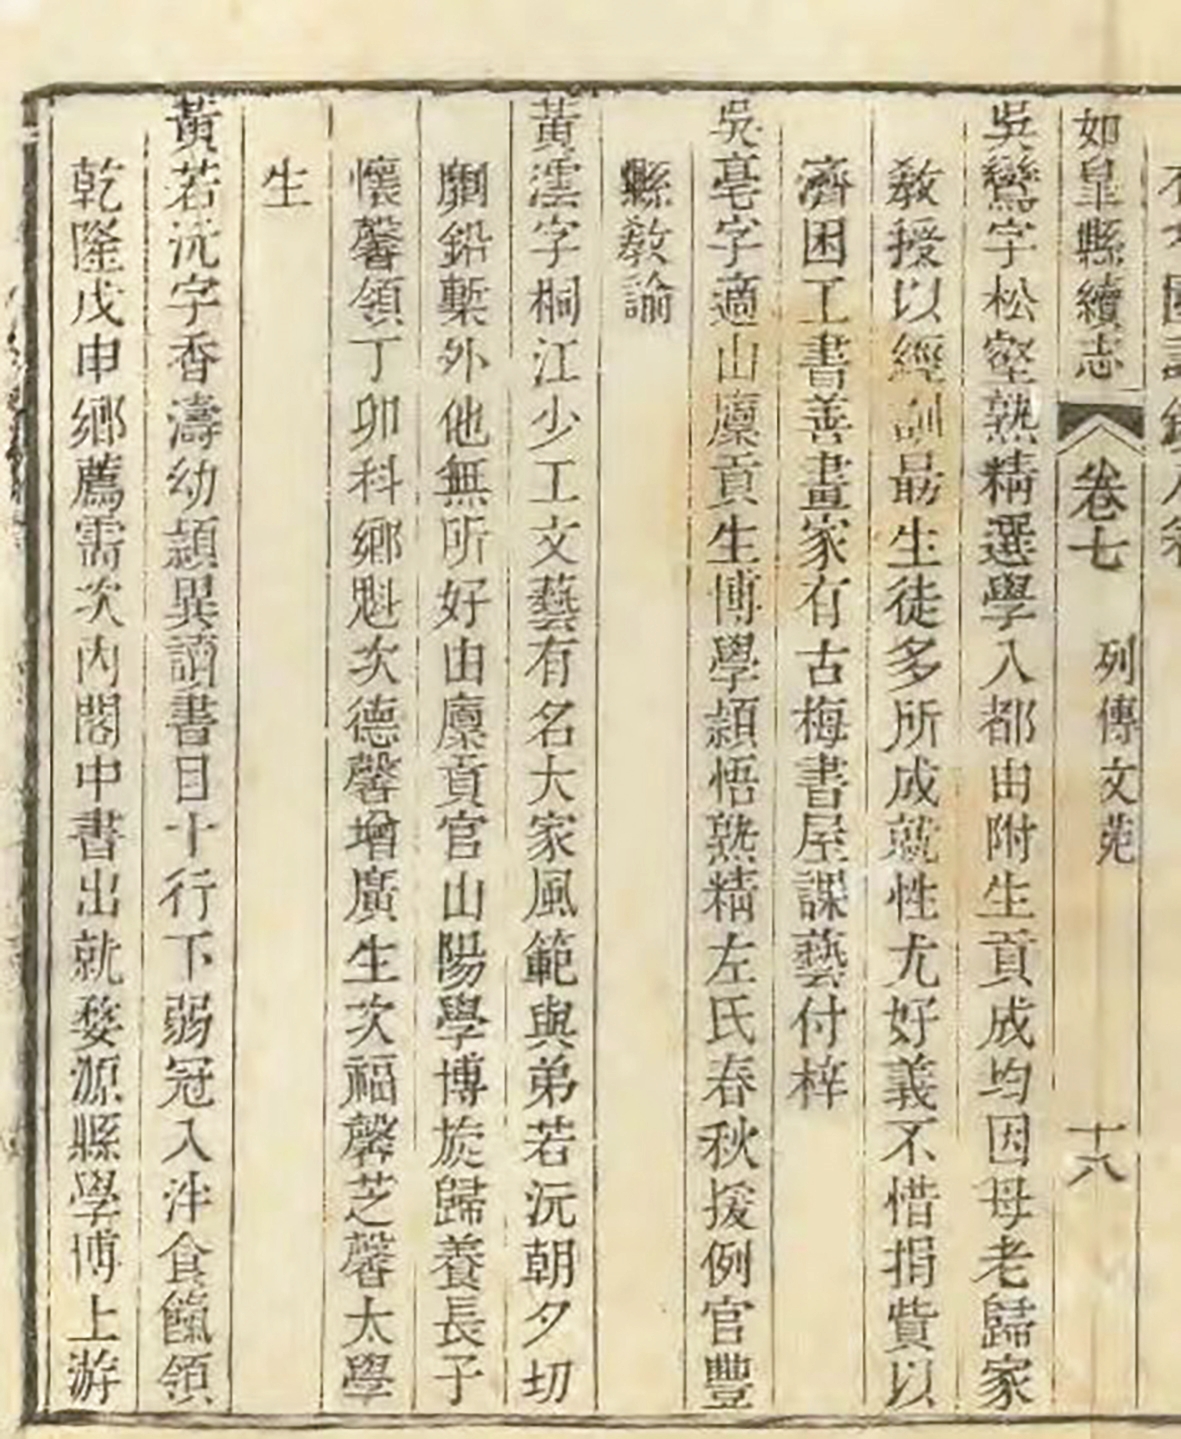 如皐縣續志 卷七 列傳文苑 十六
吳鸞字松壑熟精選學入都由附生貢成均因母老歸家
教授以經訓勗生徒多所成就性尤好義不惜捐貲以
濟困工書善畫家有古梅書屋課藝付梓
吳亳字適山廩貢生博學穎悟熟精左氏春秋援例官豐
縣教諭
黃澐字桐江少工文藝有名大家風範與弟若沅朝夕切
劘鉛槧外他無所好由廩貢官山陽學博旋歸養長子
懷馨領丁卯科鄉魁次德馨增廣生次福馨芝馨太學
生
黃若沅字香濤幼穎異讀書目十行下弱冠入泮食餼領
乾隆戊申鄉薦需次內閣中書出就婺源縣學博上游